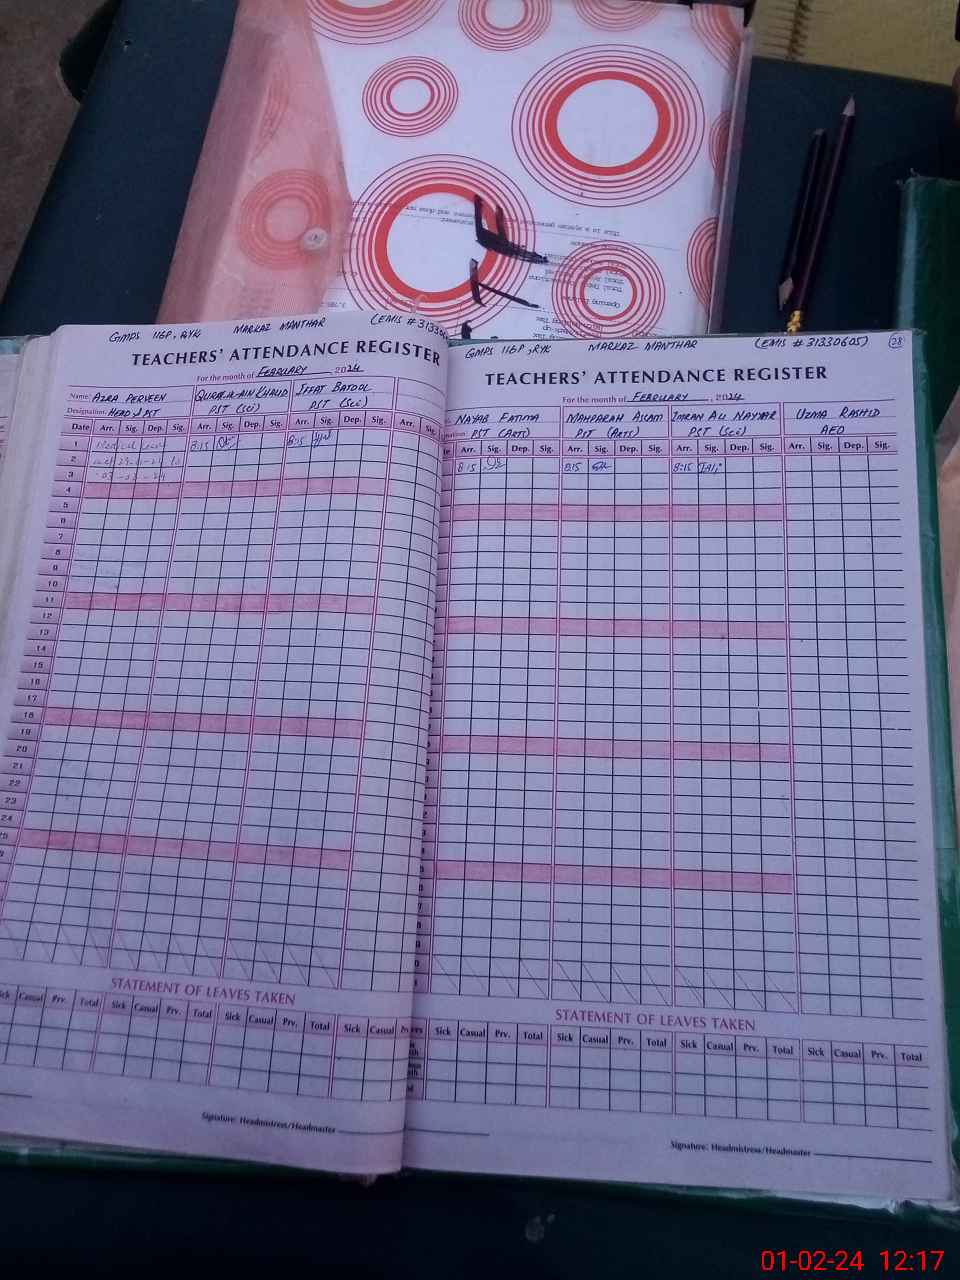 GMPS 116P, RYK MARKAZ MANTHAR (EMIS # 313306
TEACHERS' ATTENDANCE REGISTER
For the month of FEBRUARY 2024
Name: AZRA PERVEEN QURAT-UL-AIN KHALID IFFAT BATOOL
Designation: HEAD / PST PST (Sci) PST (Sci)
Date Arr. Sig. Dep. Sig. Arr. Sig. Dep. Sig. Arr. Sig. Dep. Sig. Arr. Sig.
1 8:15 8:15
2
3
4
5
6
7
8
9
10
11
12
13
14
15
16
17
18
19
20
21
22
23
24
25
STATEMENT OF LEAVES TAKEN
Sick Casual Prv. Total Sick Casual Prv. Total Sick Casual Prv. Total Sick Casual
Signature: Headmistress/Headmaster
GMPS 116P, RYK MARKAZ MANTHAR (EMIS # 31330605) 28
TEACHERS' ATTENDANCE REGISTER
For the month of FEBRUARY, 2024
NAYAB FATIMA MAHPARAH ASLAM IMRAN ALI NAYYAR UZMA RASHID
PST (ARTS) PST (ARTS) PST (Sci) AEO
Arr. Sig. Dep. Sig. Arr. Sig. Dep. Sig. Arr. Sig. Dep. Sig. Arr. Sig. Dep. Sig.
8:15 8:15 8:15
STATEMENT OF LEAVES TAKEN
Sick Casual Prv. Total Sick Casual Prv. Total Sick Casual Prv. Total Sick Casual Prv. Total
Signature: Headmistress/Headmaster
01-02-24 12:17